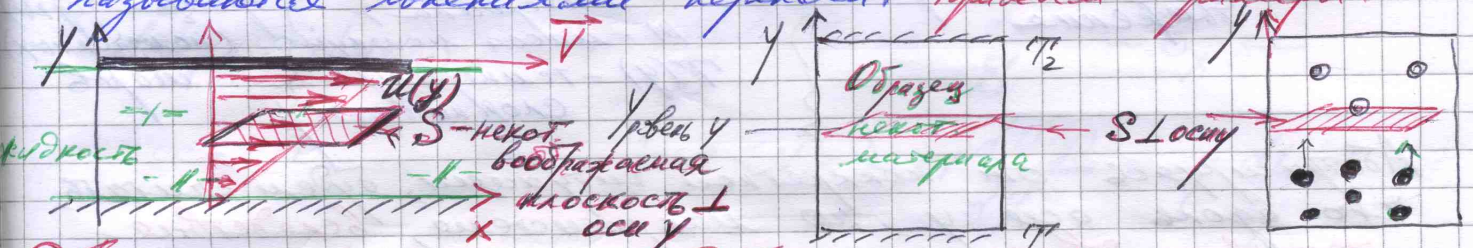 называются явлениями переноса
y
V
u(y)
жидкость
S-некот.
воображаемая
плоскость ⊥
оси y
x
y
T₂
Образец
некот
материала
Уровень y
T₁
S⊥оси y
y